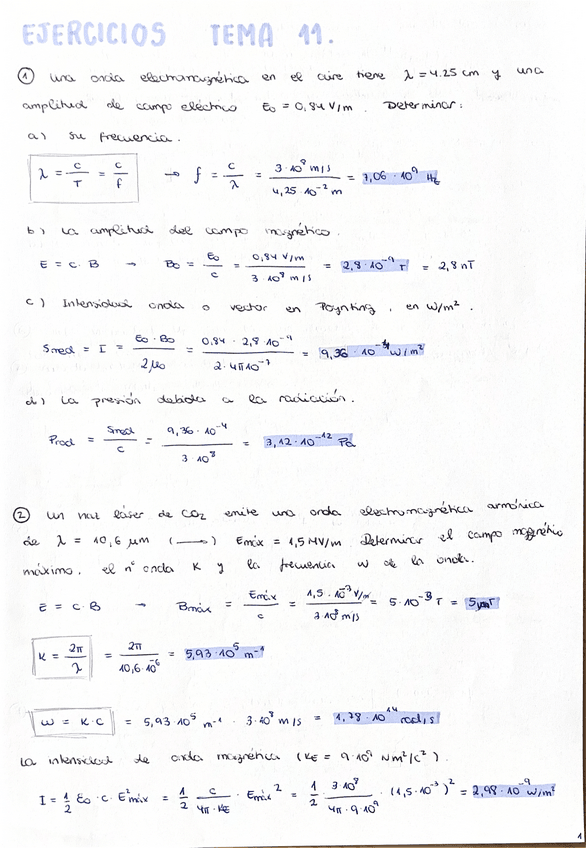 EJERCICIOS TEMA 11.
① una onda electromagnética en el aire tiene λ = 4.25 cm y una
amplitud de campo eléctrico E₀ = 0,84 V/m. Determinar:
a) su frecuencia.
λ = c/T = c/f → f = c/λ = 3·10⁸ m/s / 4,25·10⁻² m = 7,06·10⁹ Hz
b) La amplitud del campo magnético.
E = c·B → B₀ = E₀/c = 0,84 V/m / 3·10⁸ m/s = 2,8·10⁻⁹ T = 2,8 nT
c) Intensidad onda o vector en Poynting, en W/m².
Smed = I = E₀·B₀ / 2μ₀ = 0,84·2,8·10⁻⁹ / 2·4π10⁻⁷ = 9,36·10⁻⁴ W/m²
d) La presión debida a la radiación.
Prad = Smed/c = 9,36·10⁻⁴ / 3·10⁸ = 3,12·10⁻¹² Pa
② un haz láser de CO₂ emite una onda electromagnética armónica
de λ = 10,6 μm (⟶) Emáx = 1,5 MV/m. Determinar el campo magnético
máximo, el nº onda K y la frecuencia ω de la onda.
E = c·B → Bmáx = Emáx/c = / 3·10⁸ m/s = 5·10⁻³ T =
K = 2π/λ = 2π / 10,6·10⁻⁶ = 5,93·10⁵ m⁻¹
ω = K·C = 5,93·10⁵ m⁻¹ · 3·10⁸ m/s = 1,78·10¹⁴ rad/s
La intensidad de onda magnética (KE = 9·10⁹ Nm²/C²).
I = 1/2 ε₀·c·E²máx = 1/2 c / 4π·KE · Emáx² = 1/2 3·10⁸ / 4π·9·10⁹ · (1,5·10⁻³)² = 2,98·10⁻⁹ W/m²
1